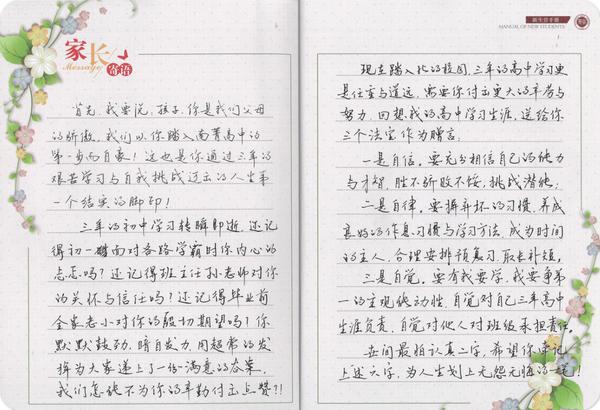 家长
Message
寄语
首先，我要说，孩子，你是我们父母
的骄傲。我们以你踏入南菁高中的
第一步而自豪！这也是你通过三年的
艰苦学习与自我挑战迈出的人生第
一个结实的脚印！
三年的初中学习转瞬即逝，还记
得初一面对各路学霸时你内心的
忐忑吗？还记得班主任孙老师对你
的关怀与信任吗？还记得毕业前
全家老小对你的殷切期望吗？你
默默鼓劲，暗自发力，用超常的发
挥为大家递上了一份满意的答案。
我们怎能不为你的辛勤付出点赞？！
新生管手册
MANUAL OF NEW STUDENTS
现在踏入化的校园，三年的高中学习更
是任重与道远，需要你付出更大的辛劳与
努力，回想我的高中学习生涯，送给你
三个法宝作为赠言：
一是自信。要充分相信自己的能力
与才智，胜不骄败不馁，挑战潜能；
二是自律。要摒弃坏的习惯，养成
良好的作息习惯与学习方法，成为时间
的主人，合理安排预复习，取长补短。
三是自觉。要有我要学，我要争第
一的主观能动性，自觉对自己三年高中
生涯负责，自觉对他人对班级承担责任。
世间最怕认真二字，希望你牢记
上述六字，为人生划上无怨无悔的一笔！